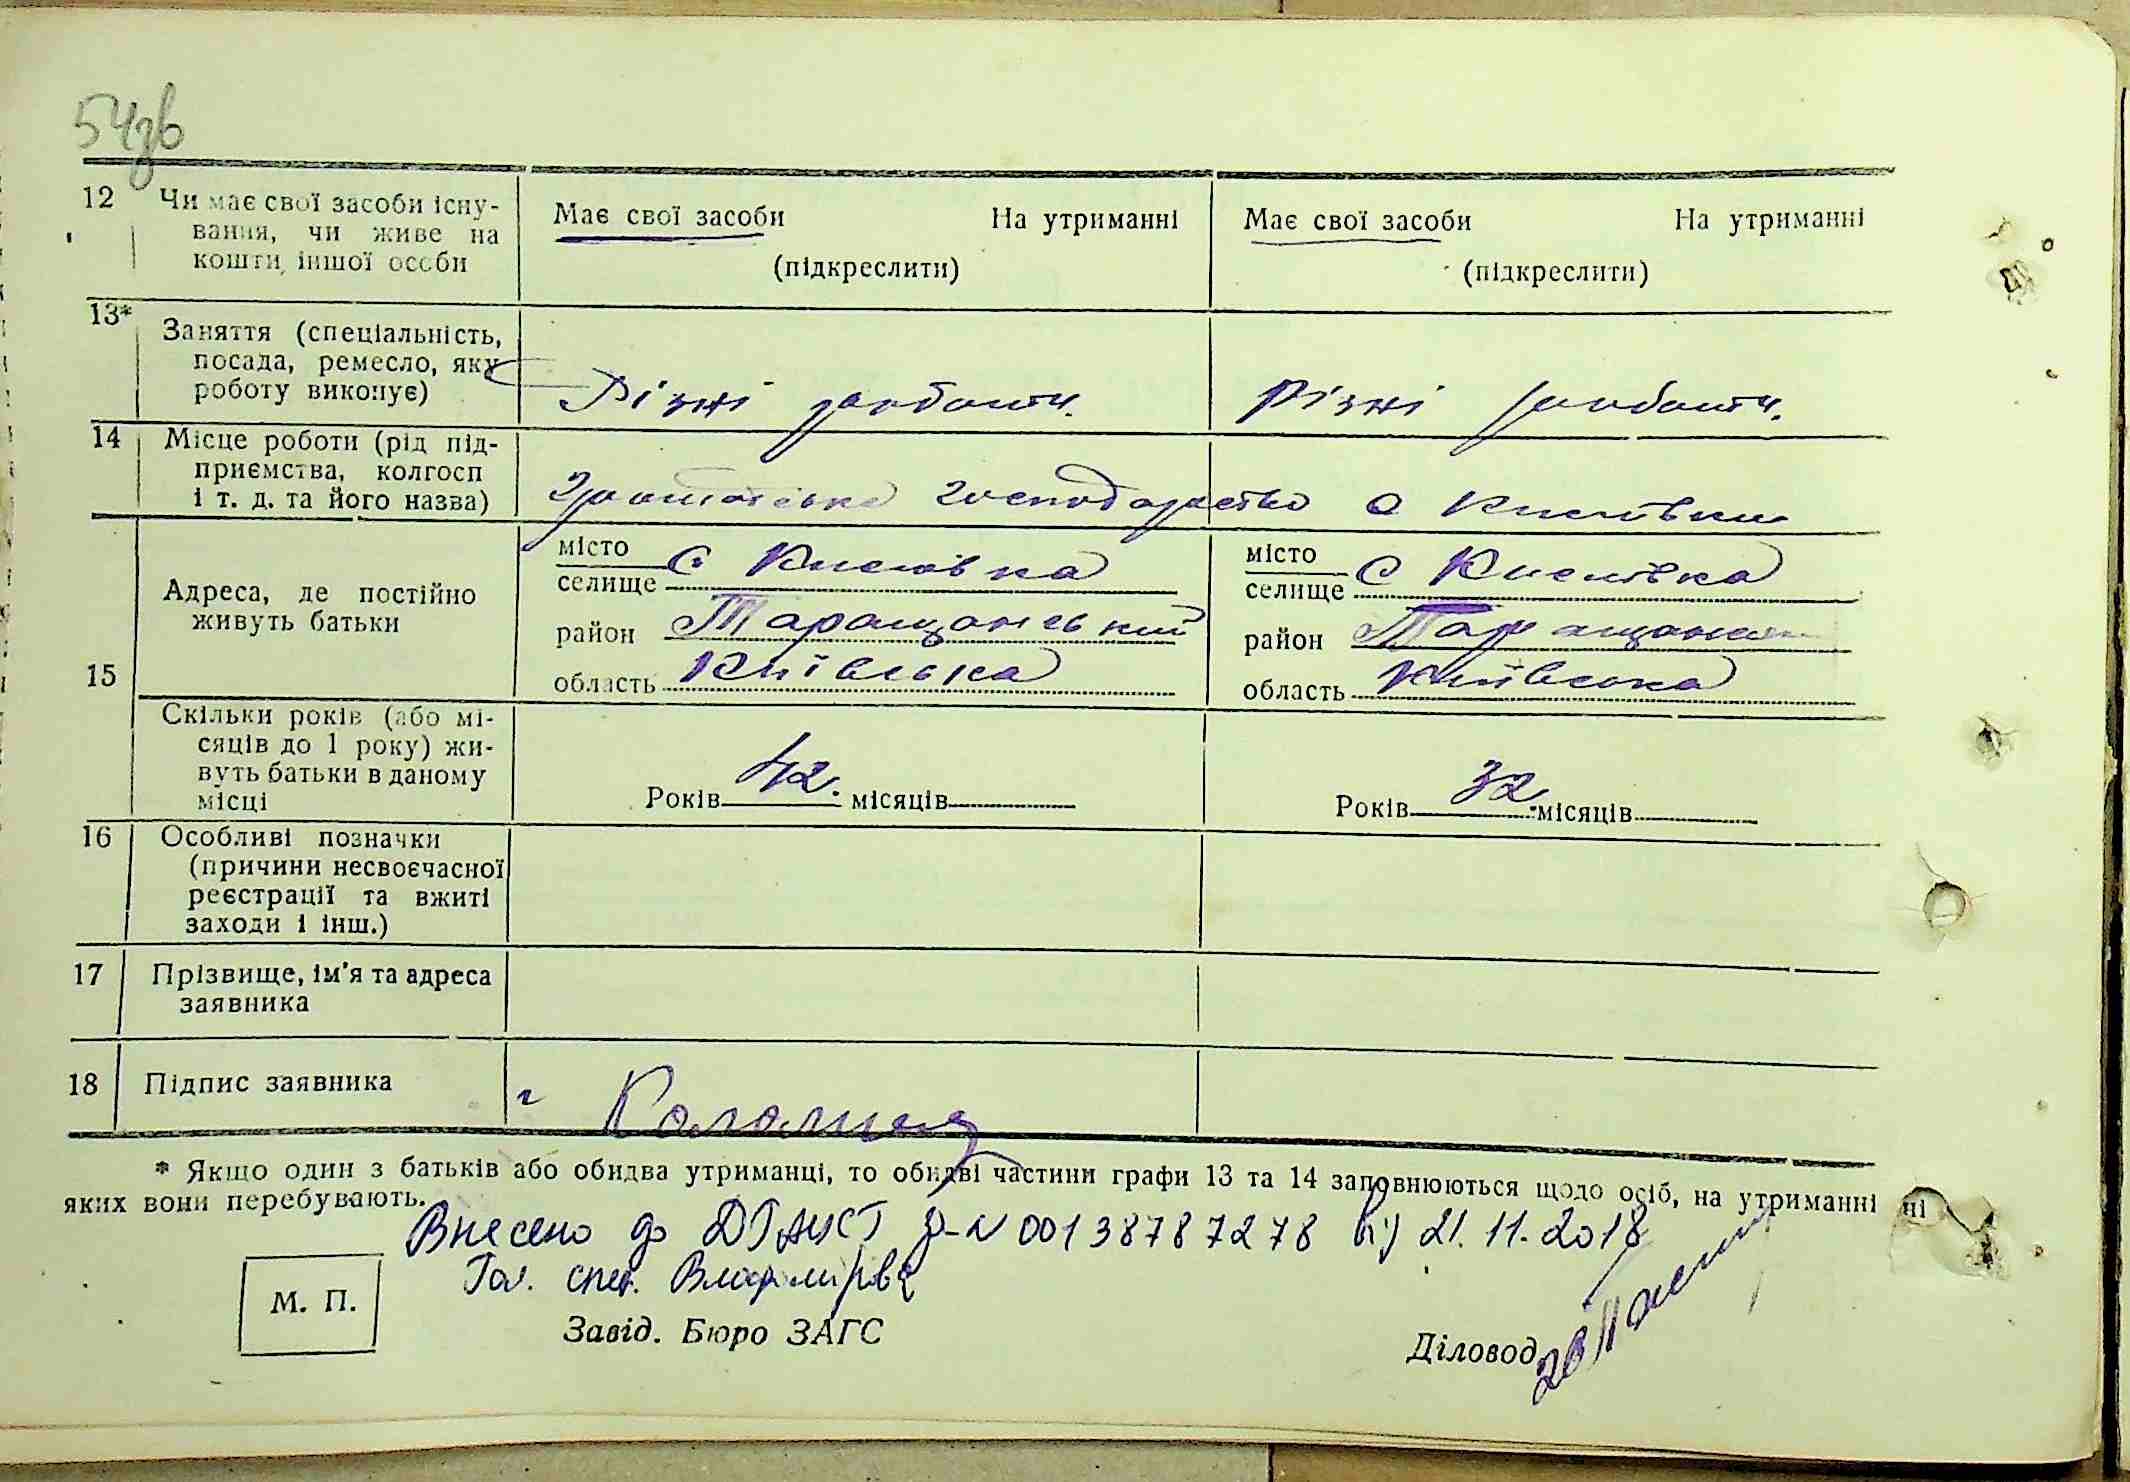 54зв
12 Чи має свої засоби існу-
вання, чи живе на
кошти іншої особи
Має свої засоби На утриманні
(підкреслити)
Має свої засоби На утриманні
(підкреслити)
13* Заняття (спеціальність,
посада, ремесло, яку
роботу виконує)
Різні роботи.
Різні роботи.
14 Місце роботи (рід під-
приємства, колгосп
і т. д. та його назва)
господарство с Кислівки
15
Адреса, де постійно
живуть батьки
місто
селище с Кислівка
район Таращанський
область Київська
місто
селище с Кислівка
район Таращанський
область Київська
Скільки років (або мі-
сяців до 1 року) жи-
вуть батьки в даному
місці
Років 42. місяців
Років 32. місяців
16 Особливі позначки
(причини несвоєчасної
реєстрації та вжиті
заходи і інш.)
17 Прізвище, ім'я та адреса
заявника
18 Підпис заявника
* Якщо один з батьків або обидва утриманці, то обидві частини графи 13 та 14 заповнюються щодо осіб, на утриманні
яких вони перебувають.
Внесено до ДРАЦСГ р-N 00138787278 від 21.11.2018
Гол. спец.
М. П.
Завід. Бюро ЗАГС
Діловод